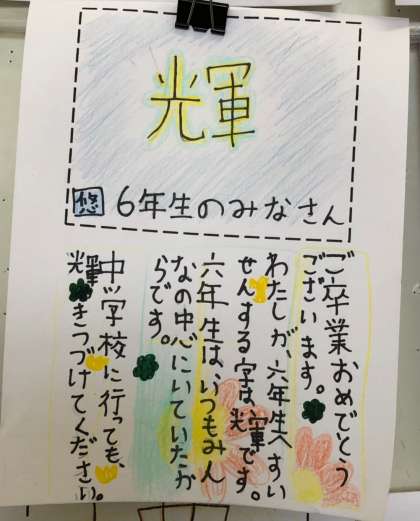 輝
悠 6年生のみなさん
ご卒業おめでとう
ございます。
わたしが、六年生へすい
せんする字は輝です。
六年生は、いつもみん
なの中心にいていたか
らです。
中学校に行っても、
輝きつづけてください。